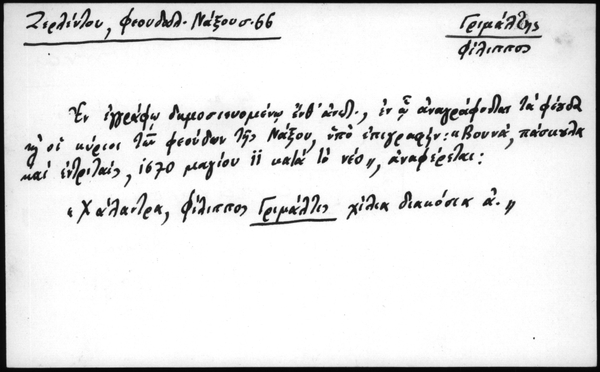 Ζερλέντου, φεουδαλ. Νάξου σ. 66
Γριμάλδης
Φίλιππος
Ἐν ἐγγράφῳ δημοσιευομένῳ ἐνθ' ἀνωτ., ἐν ᾧ ἀναγράφονται τὰ φέουδα
κ' οἱ κύριοι τῶν φεούδων τῆς Νάξου, ὑπὸ ἐπιγραφήν: «Βουνά, πάσκουλα
καὶ ἐντριταίς, 1670 μαγίου 11 κατὰ τὸ νέο», ἀναφέρεται:
«Χάλαντρα, Φίλιππος Γριμάλδις χίλια διακόσια ἀ.»